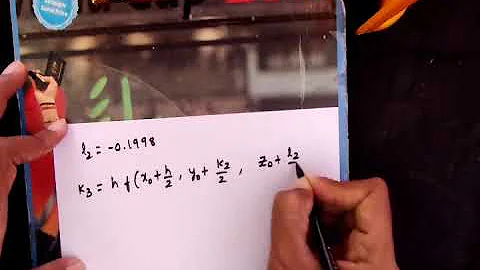 l₂ = -0.1998
k₃ = h f(x₀+h/2, y₀+k₂/2, z₀+l₂/